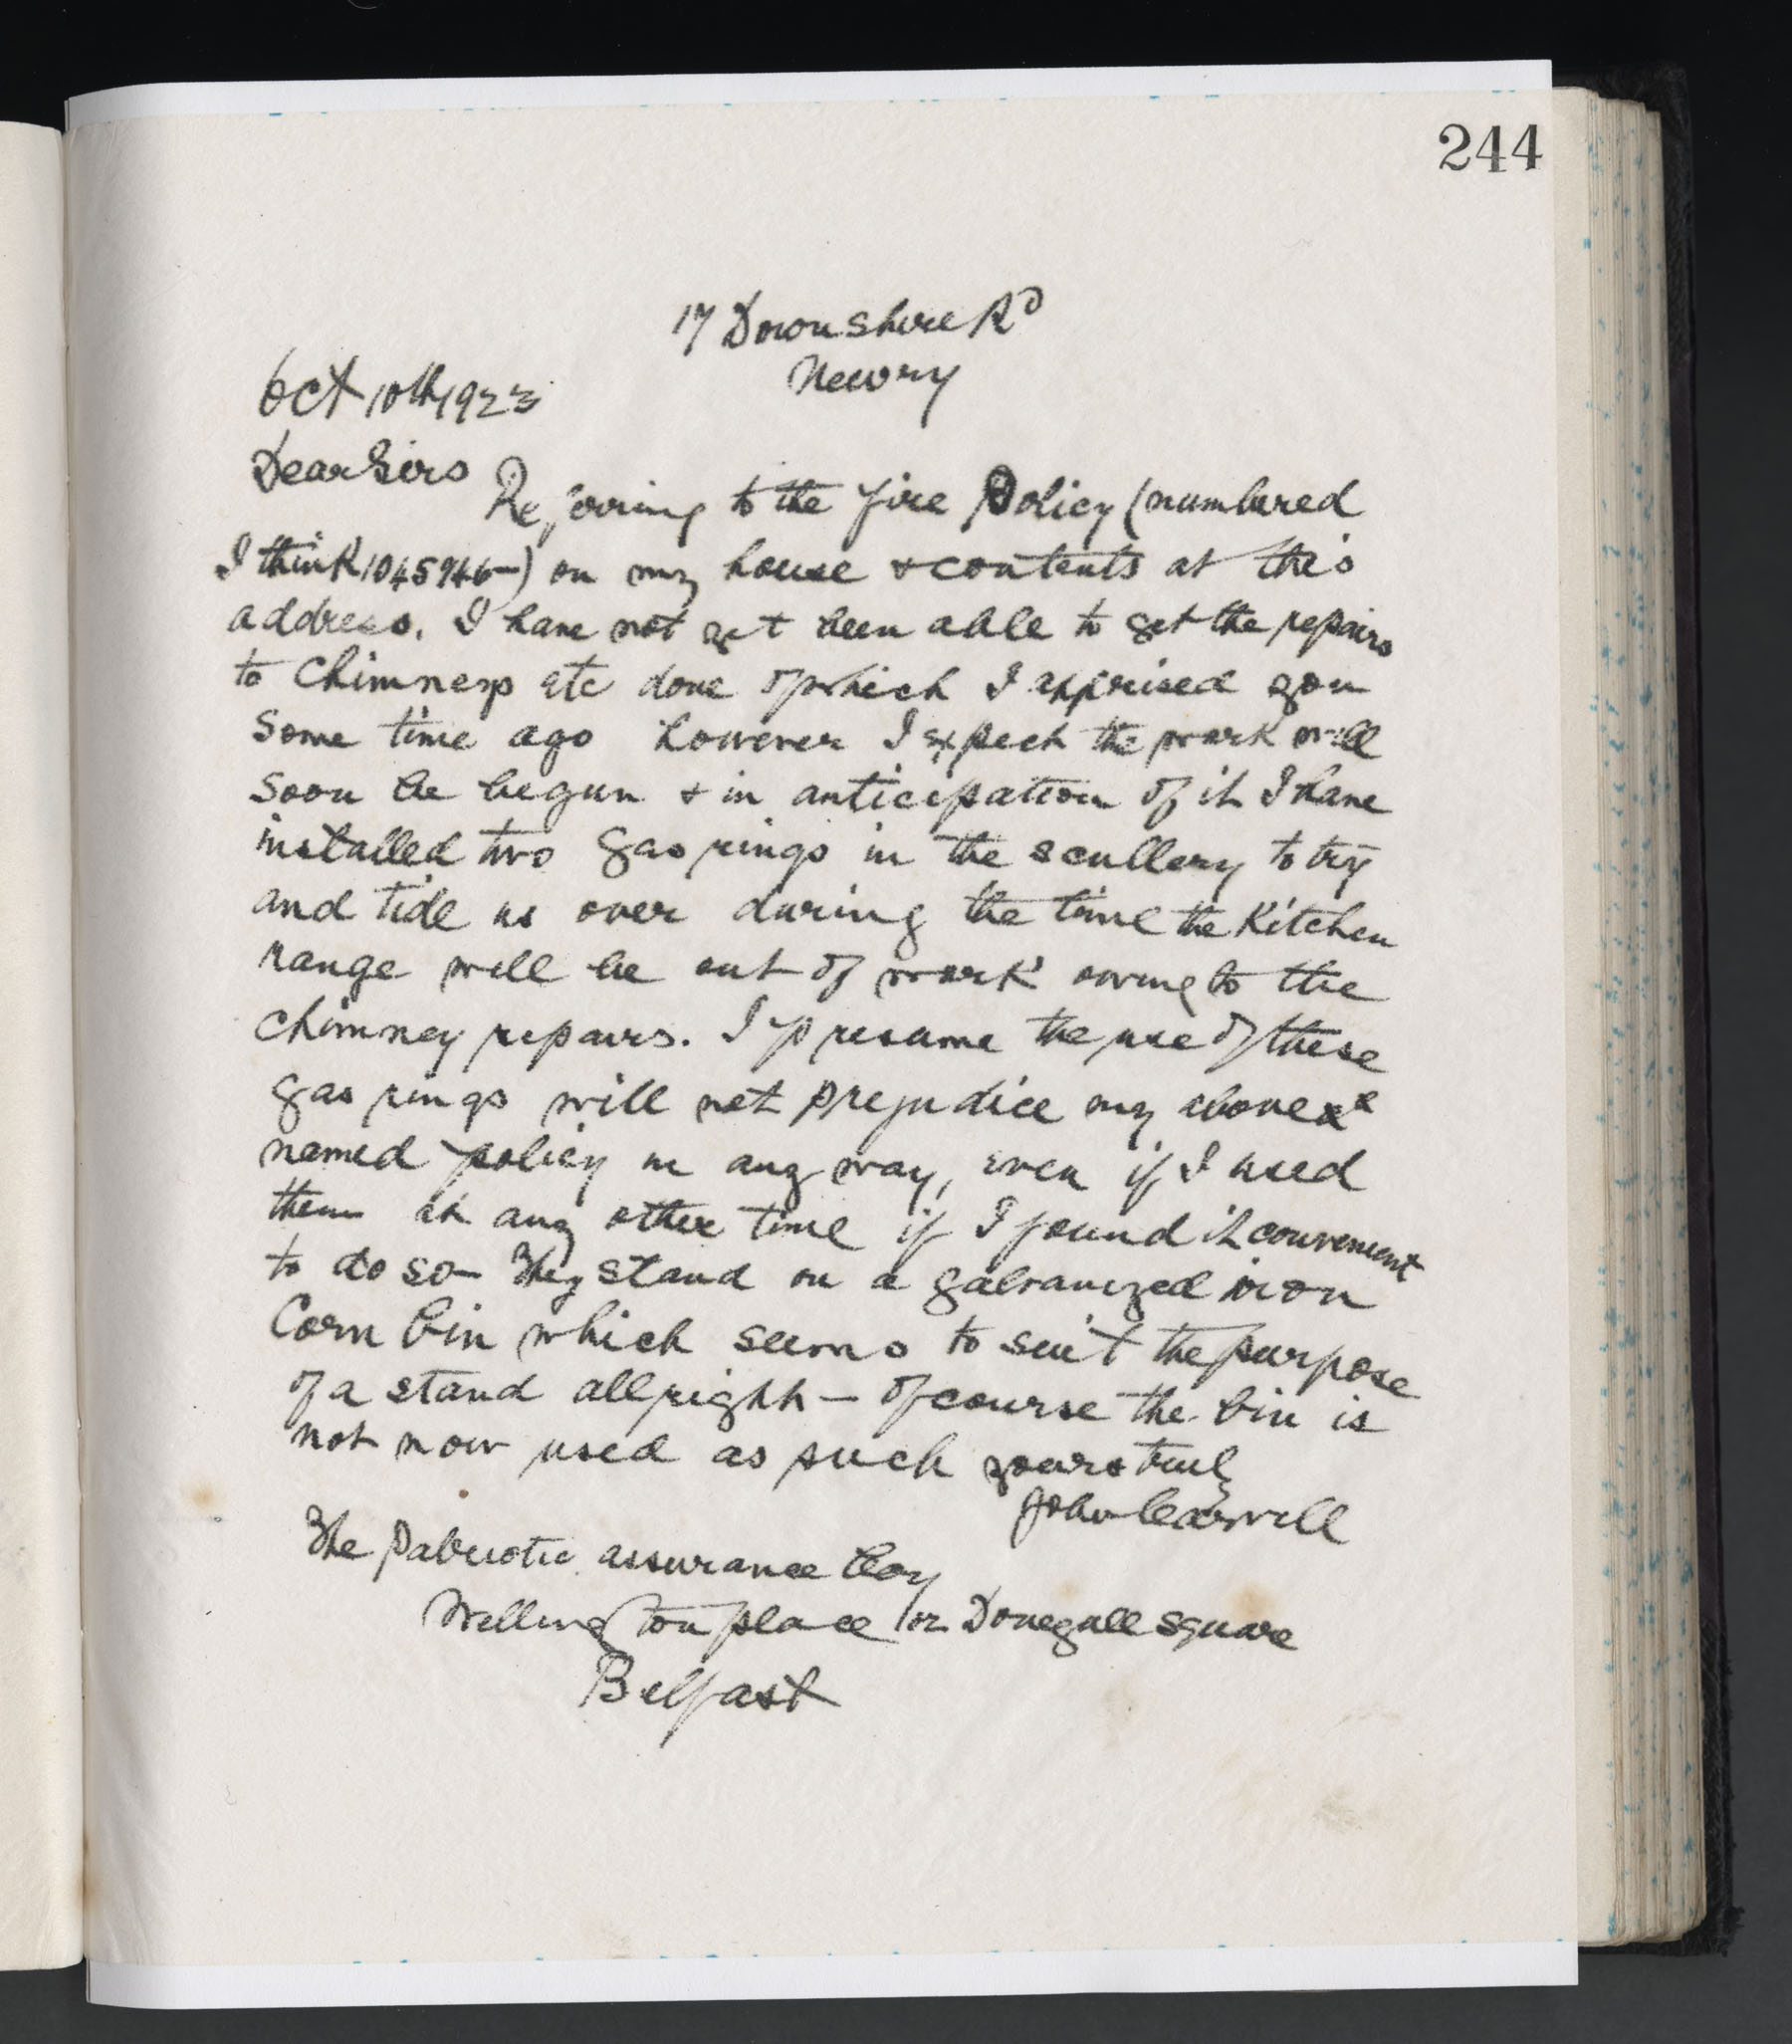 244
17 Downshire Rd
Newry
Oct 10th 1923
Dear Sirs
Referring to the fire Policy (numbered
I think 1045946-) on my house & contents at this
address. I have not yet been able to get the repairs
to Chimneys etc done of which I apprised you
some time ago however I expect the work will
soon be begun & in anticipation of it I have
installed two gas rings in the scullery to try
and tide us over during the time the Kitchen
range will be out of work owing to the
chimney repairs. I presume the use of these
gas rings will not prejudice my above
named policy in any way, even if I used
them at any other time if I found it convenient
to do so - They stand on a galvanized iron
Corn bin which seems to suit the purpose
of a stand all right - of course the bin is
not now used as such yours truly
John
The Patriotic assurance Coy
Wellington place or Donegall square
Belfast